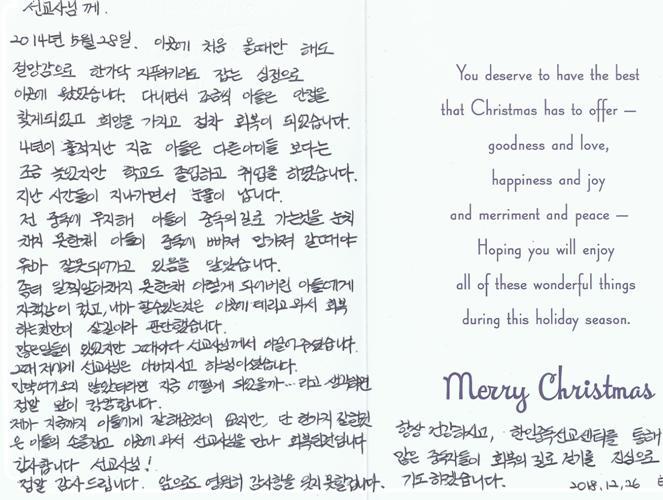 선교사님께.
2014년 5월 28일. 이곳에 처음 올때만 해도
절망감으로 한가닥 지푸라기라도 잡는 심정으로
이곳에 왔었습니다. 다니면서 조금씩 아들은 안정을
찾게되었고 희망을 가지고 점차 회복이 되었습니다.
4년이 흘러지난 지금 아들은 다른아이들 보다는
조금 늦었지만 학교도 졸업하고 취업을 하였습니다.
지난 시간들이 지나가면서 눈물이 납니다.
전 중독에 무지해 아들이 중독의길로 가는것을 눈치
채지 못한채 아들이 중독에 빠져 망가져 갈때야
뭔가 잘못되어가고 있음을 알았습니다.
좀더 일찍알아채지 못한채 이렇게 되어버린 아들에게
자책감이 컸고, 내가 할수있는것은 이곳에 데리고 와서 회복
하는것만이 살길이라 판단했습니다.
많은일들이 있었지만 그때마다 선교사님께서 이끌어주셨습니다.
그때 저에게 선교사님은 아버지시고 하나님이셨습니다.
만약여기오지 않았더라면 지금 어떻게 되었을까… 라고 생각하면
정말 앞이 캄캄합니다.
제가 지금까지 아들에게 잘해준것이 없지만, 단 한가지 잘한것
은 아들의 손을잡고 이곳에 와서 선교사님을 만나 회복된것입니다
감사합니다 선교사님!
정말 감사드립니다. 앞으로도 영원히 감사함을 잊지 못할겁니다.
You deserve to have the best
that Christmas has to offer —
goodness and love,
happiness and joy
and merriment and peace —
Hoping you will enjoy
all of these wonderful things
during this holiday season.
Merry Christmas
항상 건강하시고, 한인중독선교센터를 통해
많은 중독자들이 회복의 길로 걷기를 진심으로
기도하겠습니다. 2018.12.26